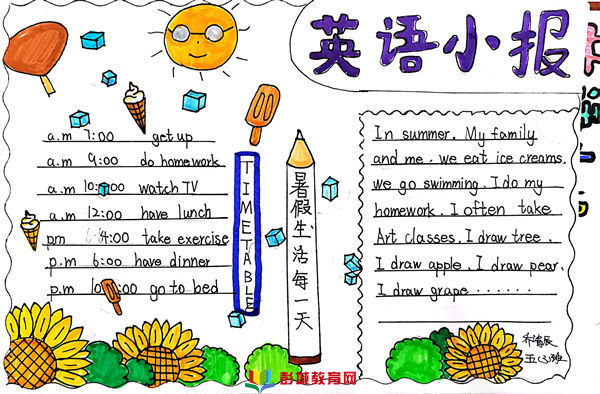 英语小报
a.m 7:00 get up
a.m 9:00 do homework
a.m 10:00 watch TV
a.m 12:00 have lunch
pm 4:00 take exercise
p.m 6:00 have dinner
p.m 10:00 go to bed
TIMETABLE
暑假生活每一天
In summer. My family
and me. we eat ice creams.
we go swimming. I do my
homework. I often take
Art classes. I draw tree.
I draw apple. I draw pear.
I draw grape.......
五(3)班
彭城教育网